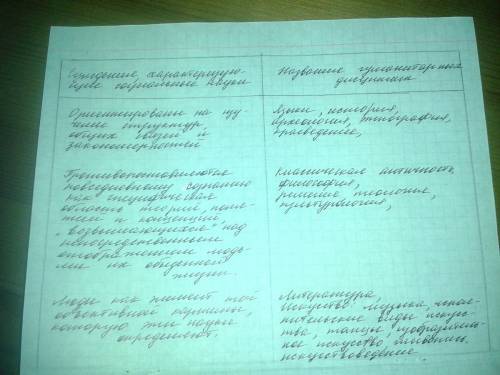 Суждение, характеризую-
щие социальные науки
Название гуманитарных
дисциплин
Ориентирование на изу-
чение структур,
общих связей и
закономерностей
Языки, история,
археология, этнография,
правоведение,
Противопоставляются
повседневному сознанию
как специфическая
область теорий, поня-
тий и концепций,
"возвышающихся" над
непосредственным
отображением людь-
ми их обыденной
жизни.
Классическая античность,
философия,
религия, теология,
культурология,
Люди как элемент той
объективной картины,
которую эти науки
определяют.
Литература,
Искусство: музыка, испол-
нительские виды искус-
ства, танцы, изобразитель-
ное искусство, живопись,
искусствоведение